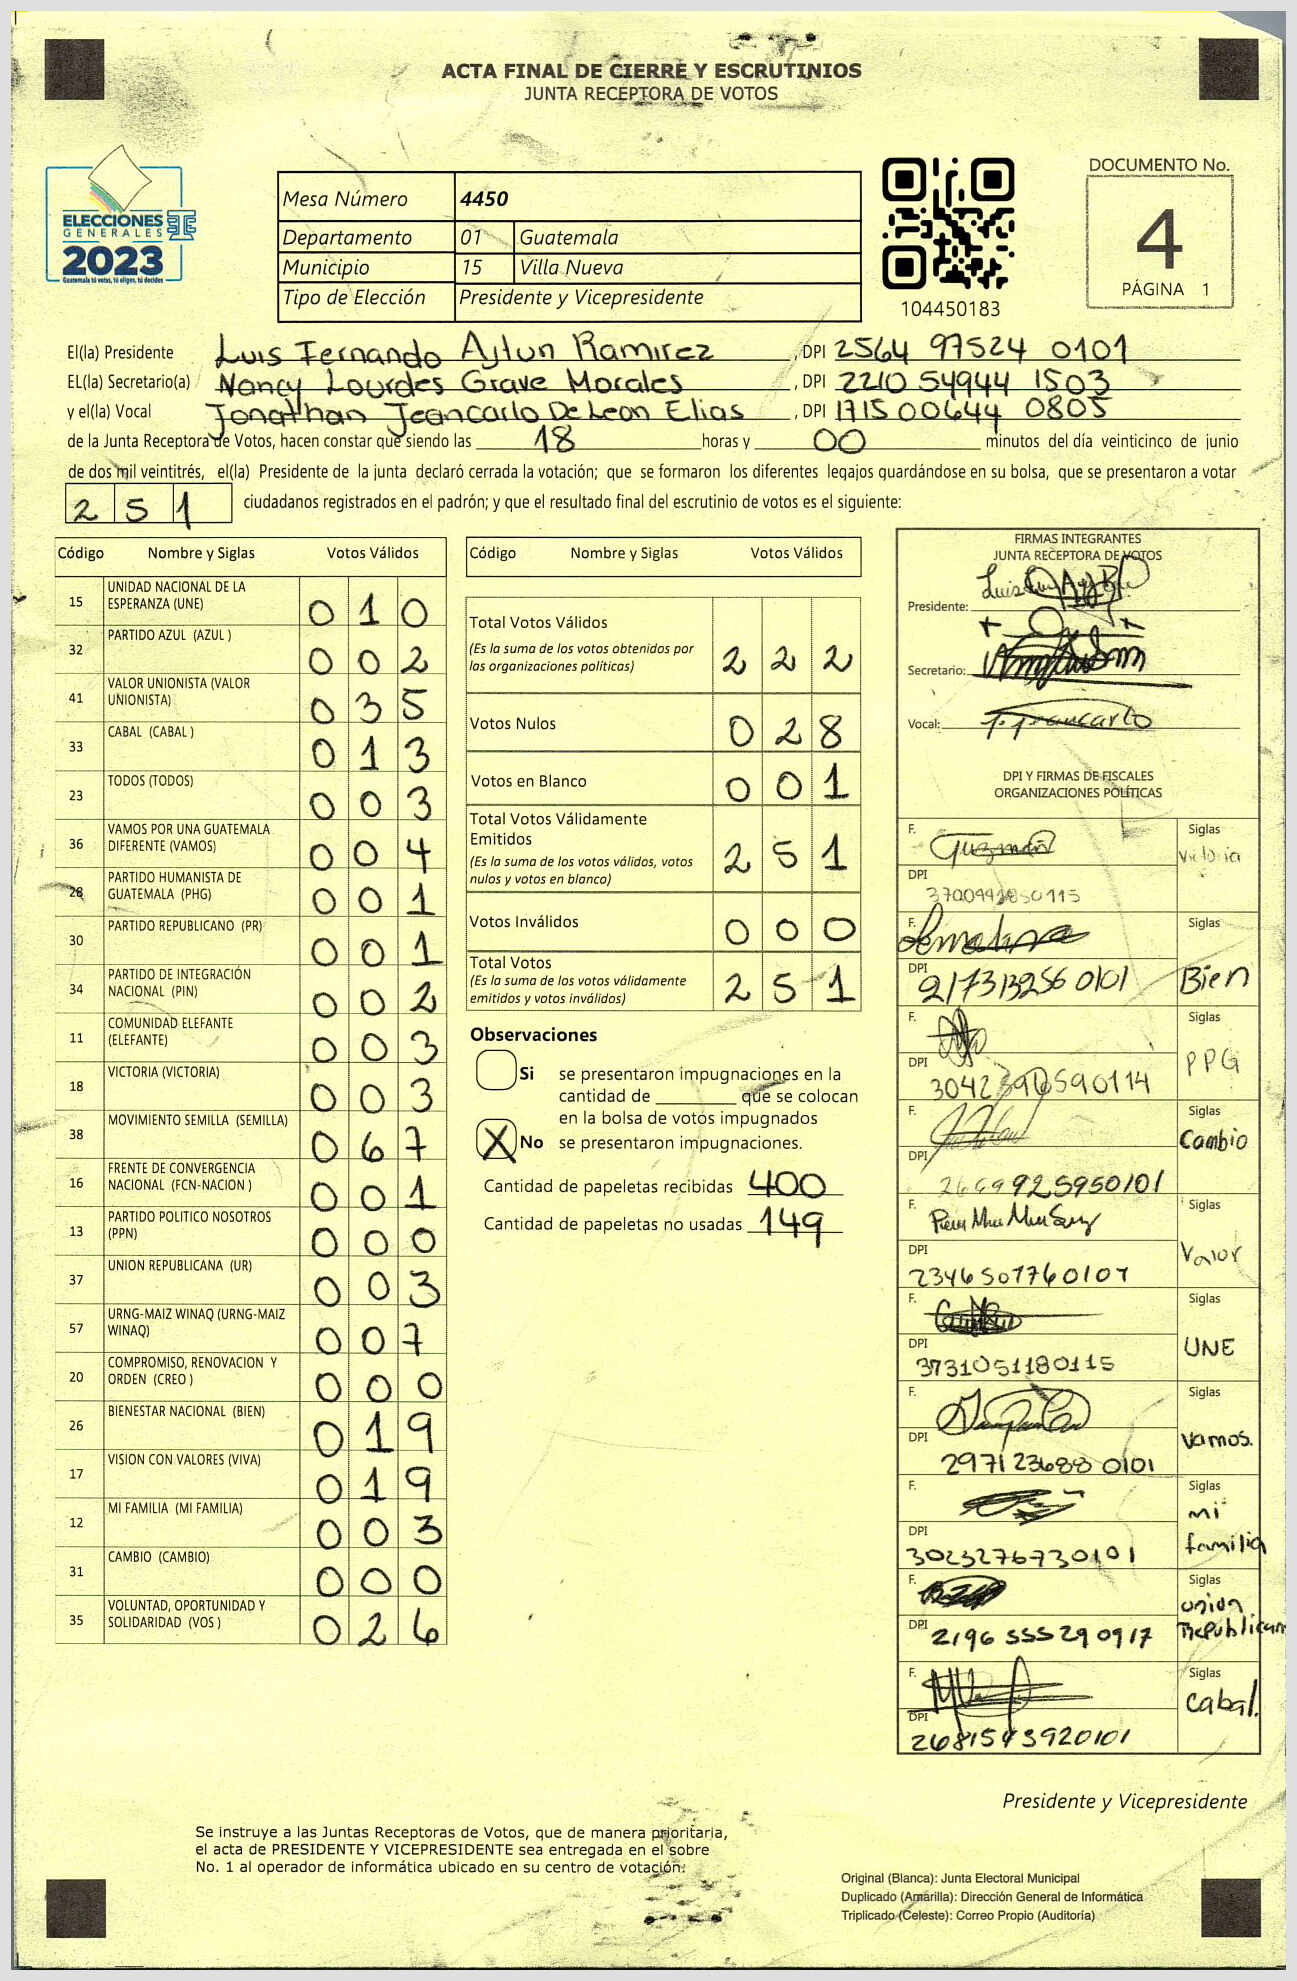 ACTA FINAL DE CIERRE Y ESCRUTINIOS
JUNTA RECEPTORA DE VOTOS
ELECCIONES
GENERALES
2023
Guatemala tú votas, tú eliges, tú decides
Mesa Número 4450
Departamento 01 Guatemala
Municipio 15 Villa Nueva
Tipo de Elección Presidente y Vicepresidente
104450183
DOCUMENTO No.
4
PÁGINA 1
El(la) Presidente Luis Fernando Ajtun Ramirez , DPI 2564 97524 0101
EL(la) Secretario(a) Nancy Lourdes Grave Morales , DPI 2210 54944 1503
y el(la) Vocal Jonathan Jeancarlo De Leon Elias , DPI 1715 00644 0805
de la Junta Receptora de Votos, hacen constar que siendo las 18 horas y 00 minutos del día veinticinco de junio
de dos mil veintitrés, el(la) Presidente de la junta declaró cerrada la votación; que se formaron los diferentes legajos guardándose en su bolsa, que se presentaron a votar
251 ciudadanos registrados en el padrón; y que el resultado final del escrutinio de votos es el siguiente:
Código Nombre y Siglas Votos Válidos
15 UNIDAD NACIONAL DE LA ESPERANZA (UNE) 010
32 PARTIDO AZUL (AZUL ) 002
41 VALOR UNIONISTA (VALOR UNIONISTA) 035
33 CABAL (CABAL ) 013
23 TODOS (TODOS) 003
36 VAMOS POR UNA GUATEMALA DIFERENTE (VAMOS) 004
28 PARTIDO HUMANISTA DE GUATEMALA (PHG) 001
30 PARTIDO REPUBLICANO (PR) 001
34 PARTIDO DE INTEGRACIÓN NACIONAL (PIN) 002
11 COMUNIDAD ELEFANTE (ELEFANTE) 003
18 VICTORIA (VICTORIA) 003
38 MOVIMIENTO SEMILLA (SEMILLA) 067
16 FRENTE DE CONVERGENCIA NACIONAL (FCN-NACION ) 001
13 PARTIDO POLITICO NOSOTROS (PPN) 000
37 UNION REPUBLICANA (UR) 003
57 URNG-MAIZ WINAQ (URNG-MAIZ WINAQ) 007
20 COMPROMISO, RENOVACION Y ORDEN (CREO ) 000
26 BIENESTAR NACIONAL (BIEN) 019
17 VISION CON VALORES (VIVA) 019
12 MI FAMILIA (MI FAMILIA) 003
31 CAMBIO (CAMBIO) 000
35 VOLUNTAD, OPORTUNIDAD Y SOLIDARIDAD (VOS ) 026
Código Nombre y Siglas Votos Válidos
Total Votos Válidos
(Es la suma de los votos obtenidos por las organizaciones políticas) 222
Votos Nulos 028
Votos en Blanco 001
Total Votos Válidamente Emitidos
(Es la suma de los votos válidos, votos nulos y votos en blanco) 251
Votos Inválidos 000
Total Votos
(Es la suma de los votos válidamente emitidos y votos inválidos) 251
Observaciones
Si se presentaron impugnaciones en la
cantidad de ________ que se colocan
en la bolsa de votos impugnados
X No se presentaron impugnaciones.
Cantidad de papeletas recibidas 400
Cantidad de papeletas no usadas 149
FIRMAS INTEGRANTES
JUNTA RECEPTORA DE VOTOS
Presidente:
Secretario:
Vocal: J. Jeancarlo
DPI Y FIRMAS DE FISCALES
ORGANIZACIONES POLÍTICAS
F. Guzmán Siglas Victoria
DPI
F. Siglas Bien
DPI
F. Siglas PPG
DPI
F. Siglas Cambio
DPI
F. Siglas Valor
DPI 2346507760107
F. Siglas UNE
DPI 3731051180115
F. Siglas Vamos.
DPI 2971236880101
F. Siglas mi familia
DPI 3023276730101
F. Siglas union Republicana
DPI 2196 555290917
F. Siglas Cabal.
DPI 2681543920101
Presidente y Vicepresidente
Se instruye a las Juntas Receptoras de Votos, que de manera prioritaria,
el acta de PRESIDENTE Y VICEPRESIDENTE sea entregada en el sobre
No. 1 al operador de informática ubicado en su centro de votación.
Original (Blanca): Junta Electoral Municipal
Duplicado (Amarilla): Dirección General de Informática
Triplicado (Celeste): Correo Propio (Auditoría)